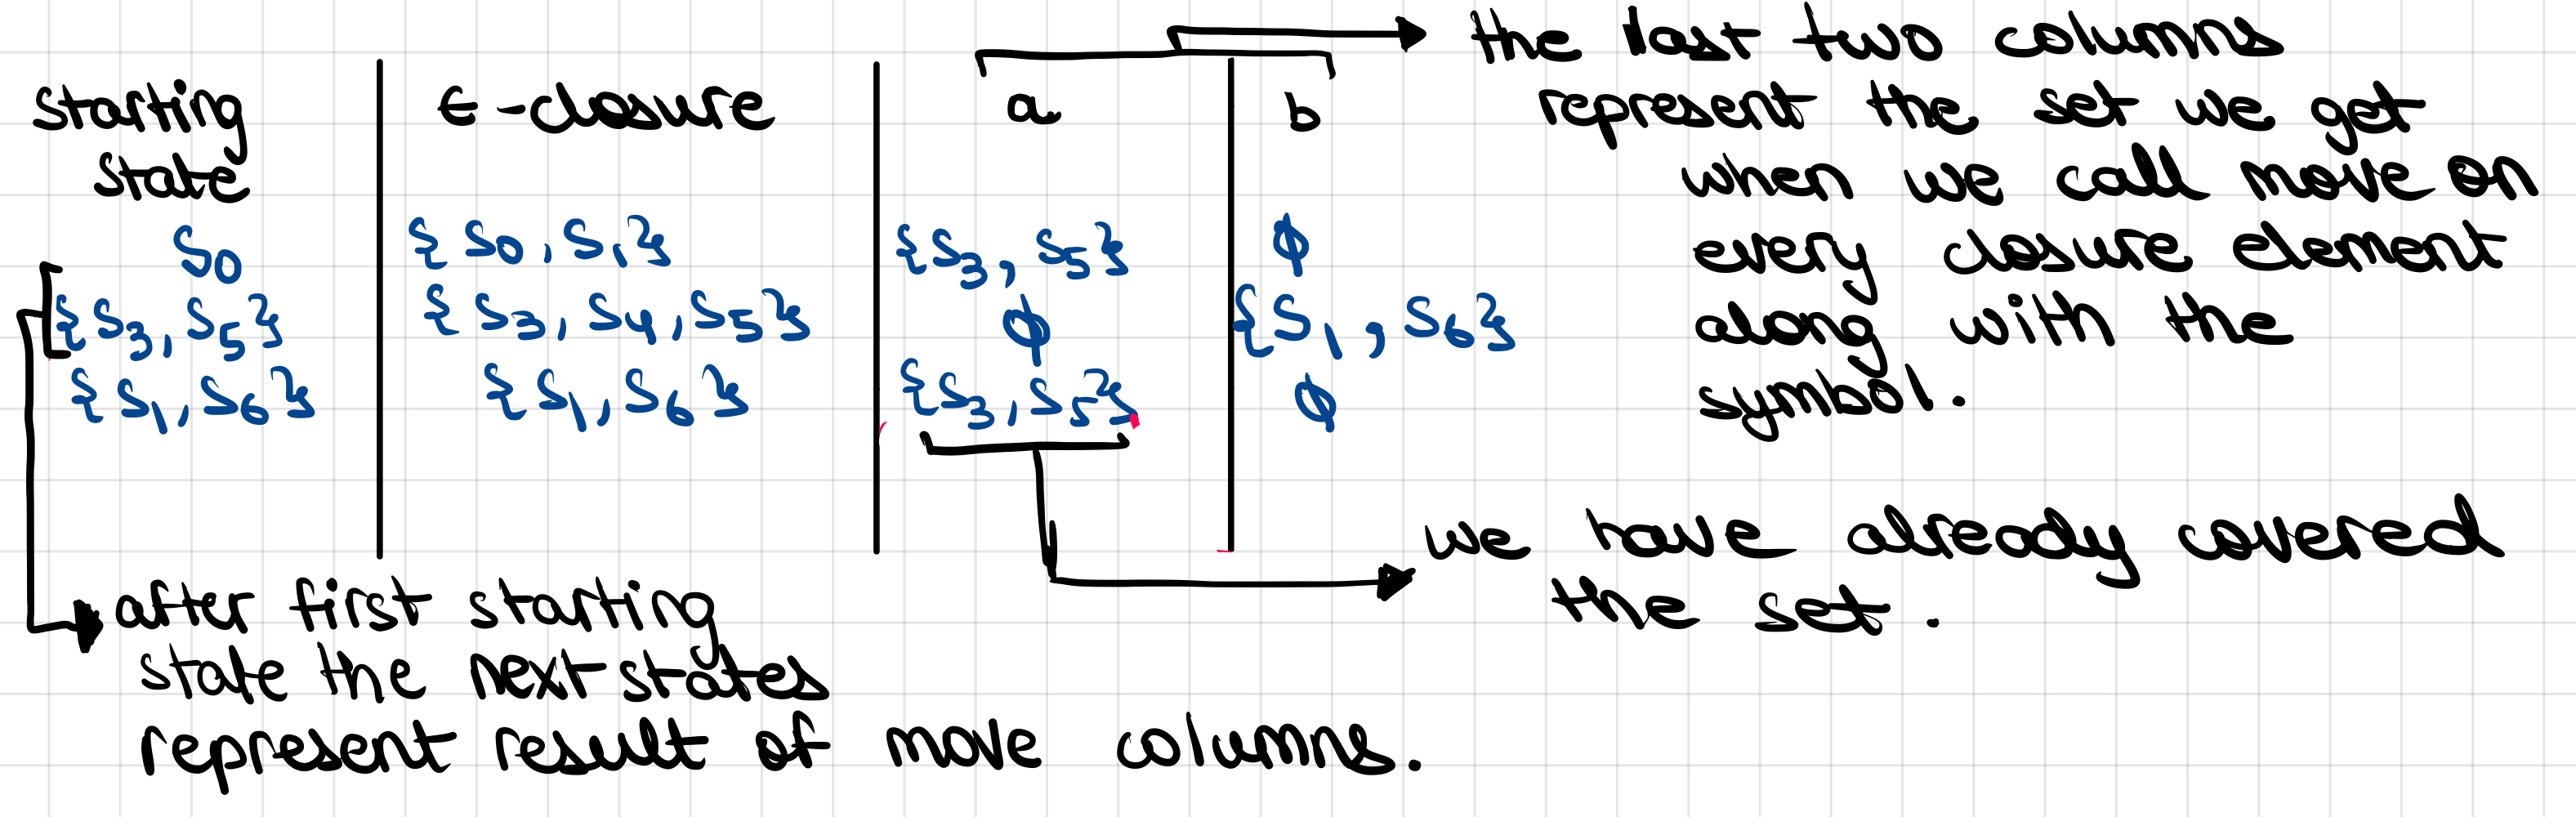 starting state | ϵ-closure | a | b
S0 | {S0, S1} | {S3, S5} | ϕ
{S3, S5} | {S3, S4, S5} | ϕ | {S1, S6}
{S1, S6} | {S1, S6} | {S3, S5} | ϕ
the last two columns
represent the set we get
when we call move on
every closure element
along with the
symbol.
we have already covered
the set.
after first starting
state the next states
represent result of move columns.